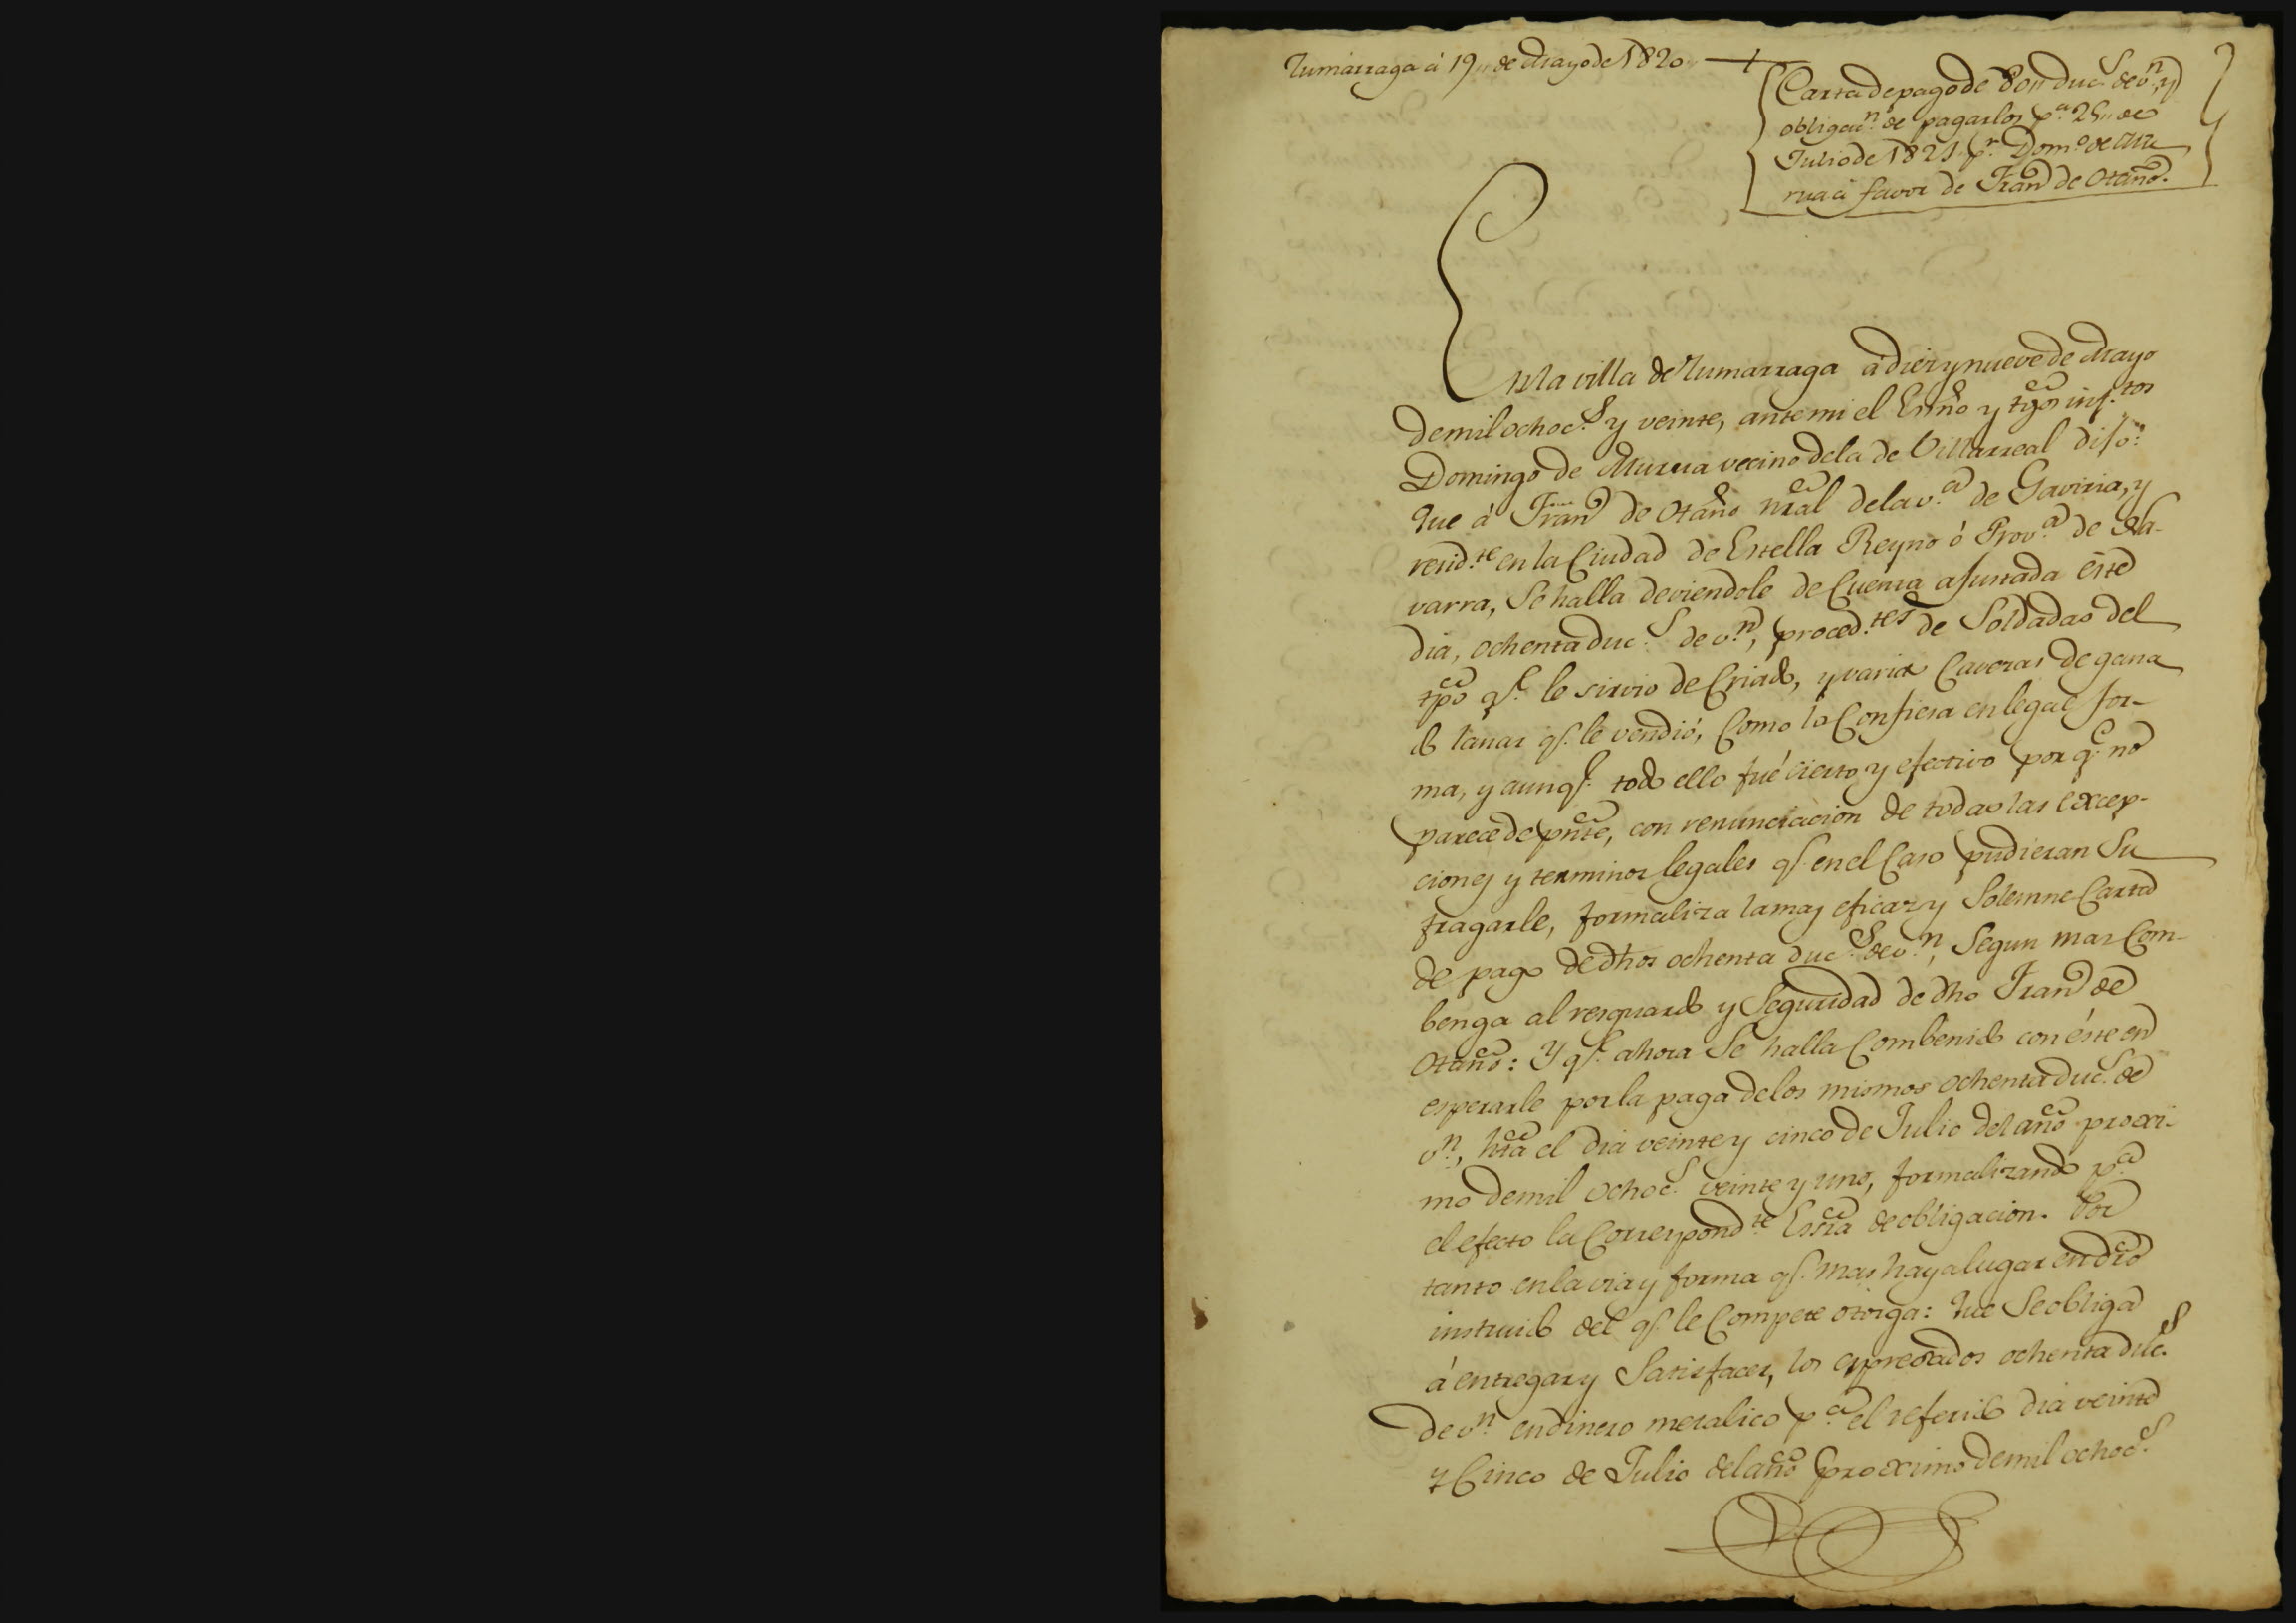 Zumarraga á 19,, de Mayo de 1820
Carta de pago de 80,, duc.s de v.n, y
obligac.n de pagarlos p.a 25,, de
Julio de 1821 p.r Dom.o de Mu
rua á favor de Fran.co de Otaño.
En la villa de Zumarraga á diez y nueve de Mayo
de mil ochoc.s y veinte, ante mi el Essño y tgos inf.tos
Domingo de Murua vecino de la de Villarreal dijo:
Que á Fran.co de Otaño nral de la v.a de Gaviria, y
resid.te en la Ciudad de Estella Reyno ó Prov.a de Na-
varra, Se halla deviendole de Cuenta ajustada éste
dia, ochenta duc.s de v.n, proced.tes de Soldadas del
tpo q.e le sirvio de Criado, y varias Cavezas de gana
do lanar q.e le vendió, Como lo Confiesa en legal for-
ma, y aunq.e todo ello fué cierto y efectivo por q.e no
parece de pnte, con renunciacion de todas las excep-
ciones y terminos legales q.e en el Caso pudieran Su
fragarle, formaliza la mas eficaz y Solemne Carta
de pago de dhos ochenta duc.s de v.n, Segun mas Com-
benga al resguardo y Seguridad de dho Fran.co de
Otaño: Y q.e ahora Se halla Combenido con éste en
esperarle por la paga de los mismos ochenta duc.s de
v.n, hta el dia veinte y cinco de Julio del año proxi-
mo de mil ochoc.s veinte y uno, formalizando p.a
el efecto la Correspond.te Essra de obligacion. Por
tanto en la via y forma q.e mas haya lugar en dro
instruido del q.e le Compete otorga: Que Se obliga
á entregar y Satisfacer, los expresados ochenta duc.s
de v.n en dinero metalico p.a el referido dia veinte
y Cinco de Julio del año proximo de mil ochoc.s